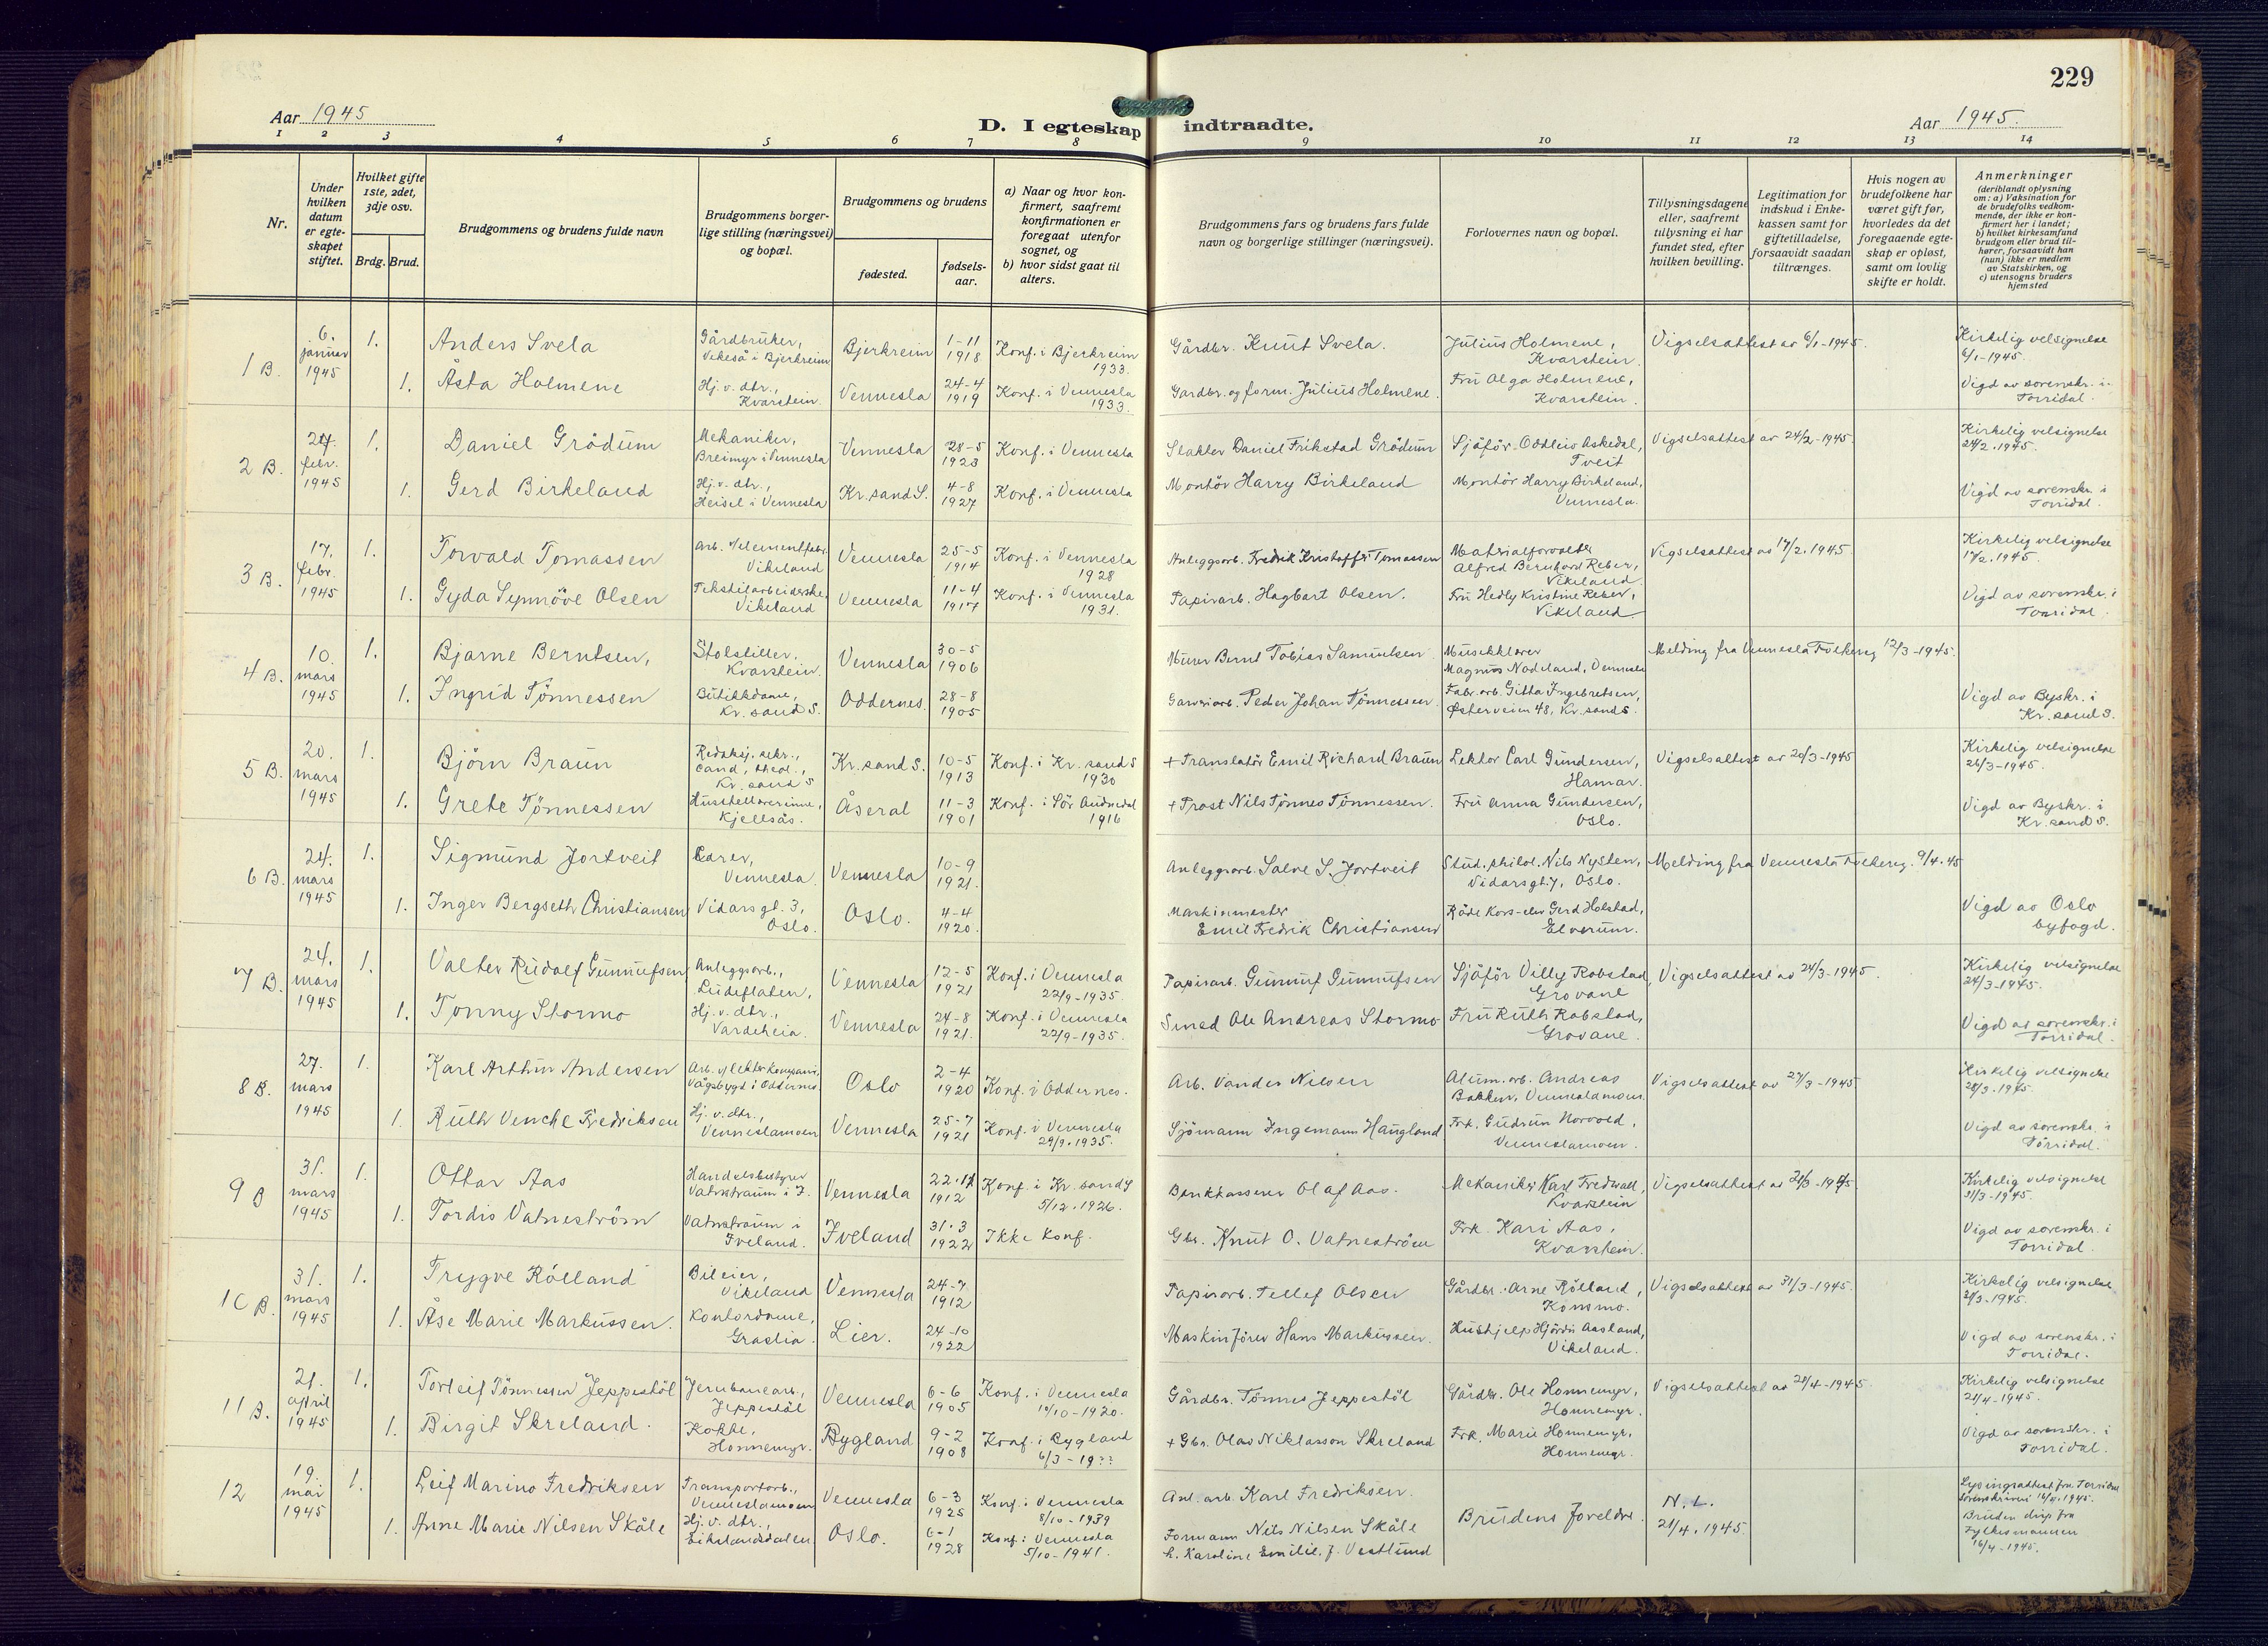 229
Aar 1945
D. I egteskap indtraadte.
Aar 1945.
1 2 3 4 5 6 7 8 9 10 11 12 13 14
Nr.
Under hvilken datum er egteskapet stiftet.
Hvilket gifte 1ste, 2det, 3dje osv.
Brdg. Brud.
Brudgommens og brudens fulde navn
Brudgommens borgerlige stilling (næringsvei) og bopæl.
Brudgommens og brudens
fødested.
fødselsaar.
a) Naar og hvor konfirmert, saafremt konfirmationen er foregaat utenfor sognet, og
b) hvor sidst gaat til alters.
Brudgommens fars og brudens fars fulde navn og borgerlige stillinger (næringsvei).
Forlovernes navn og bopæl.
Tillysningsdagene eller, saafremt tillysning ei har fundet sted, efter hvilken bevilling.
Legitimation for indskud i Enkekassen samt for giftetilladelse, forsaavidt saadan tiltrænges.
Hvis nogen av brudefolkene har været gift før, hvorledes da det foregaaende egteskap er opløst, samt om lovlig skifte er holdt.
Anmerkninger
(deriblandt oplysning om: a) Vaksination for de brudefolks vedkommende, der ikke er konfirmert her i landet; b) hvilket kirkesamfund brudgom eller brud tilhører, forsaavidt han (hun) ikke er medlem av Statskirken, og c) utensogns bruders hjemsted
1 B. 6. januar 1945 1. Anders Svela Gårdbruker, Vekeså i Bjerkreim Bjerkreim 1-11 1918 Konf. i Bjerkreim 1933. Gårdbr. Knut Svela. Julius Holmene, Kvarstein. Vigselsattest av 6/1-1945. Kirkelig velsignelse 6/1-1945.
1. Åsta Holmene Hj. v. dtr., Kvarstein. Vennesla 24-4 1919 Konf. i Vennesla 1933. Gårdbr. og form. Julius Holmene. Fru Olga Holmene, Kvarstein. Vigd av sorenskr. i Torridal.
2 B. 24. febr. 1945 1. Daniel Grödum Mekaniker, Breimyr i Vennesla Vennesla 28-5 1923 Konf. i Vennesla Slakter Daniel Frikstad Grödum Sjåför Oddleiv Askedal, Tveit Vigselsattest av 24/2-1945. Kirkelig velsignelse 24/2.1945.
1. Gerd Birkeland Hj. v. dtr., Heisel i Vennesla Kr.sand S. 4-8 1927 Konf. i Vennesla Montör Harry Birkeland Montör Harry Birkeland, Vennesla. Vigd av sorenskr. i Torridal.
3 B. 17. febr. 1945 1. Torvald Tomassen Arb. v/elementfabr. Vikeland Vennesla 25-5 1914 Konf. i Vennesla 1928 Anleggsarb. Fredrik Kristoffer Tomassen Materialforvalter Alfred Bernhard Reber, Vikeland. Vigselsattest av 17/2.1945. Kirkelig velsignelse 17/2.1945.
1. Gyda Synnöve Olsen Tekstilarbeiderske, Vikeland Vennesla 11-4 1917 Konf. i Vennesla 1931. Papirarb. Hagbart Olsen. Fru Hedly Kristine Reber, Vikeland. Vigd av sorenskr. i Torridal.
4 B. 10. mars 1945 1. Bjarne Berntsen, Stolstiller, Kvarstein. Vennesla 30-5 1906 Murer Bernt Tobias Samuelsen Musikklærer Magnus Nodeland, Vennesla Melding fra Vennesla Folkereg 12/3-1945.
1. Ingrid Tönnessen Butikkdame, Kr. sand S. Oddernes. 28-8 1905 Garveriarb. Peder Johan Tönnessen. Fabr.arb. Gitta Ingebretsen, Österveien 48, Kr.sand S. Vigd av Byskr. i Kr.sand S.
5 B. 20. mars 1945 1. Björn Braun Redaksj. sekr., cand. theol., Kr. sand S Kr.sand S. 10-5 1913 Konf. i Kr. sand S 1930 + Translatör Emil Richard Braun Lektor Carl Gundersen, Hamar. Vigselsattest av 20/3-1945 Kirkelig velsignelse 26/3-1945.
1. Grete Tönnessen Husstellærerinne, Kjellsås. Åseral 11-3 1901 Konf. i Sör Audnedal 1916 + Prost Nils Tönnes Tönnessen. Fru Anna Gundersen, Oslo. Vigd av Byskr. i Kr.sand S.
6 B. 24. mars 1945 1. Sigmund Jortveit Lærer, Vennesla. Vennesla 10-9 1921. Anleggsarb. Salve S. Jortveit Stud. philol. Nils Nysten, Vidarsgt. 7, Oslo. Melding fra Vennesla Folkereg. 9/4.45
1. Inger Bergseth Christiansen Vidars gt. 3, Oslo. Oslo. 4-4 1920. Maskinmester Emil Fredrik Christiansen Röde Kors-elev Gerd Holstad, Elverum. Vigd av Oslo byfogd.
7 B. 24. mars 1945 1. Valter Rudolf Gunnufsen Anleggsarb., Ludeflaten, Vennesla 12-5 1921 Konf. i Vennesla 22/9-1935. Papirarb. Gunnuf Gunnufsen Sjåför Villy Robstad, Grovane Vigselsattest av 24/3-1945. Kirkelig velsignelse 24/3-1945.
1. Tonny Stormo Hj. v. dtr., Vardeheia. Vennesla 24-8 1921. Konf. i Vennesla 22/9-1935. Smed Ole Andreas Stormo Fru Ruth Robstad, Grovane. Vigd av sorenskr. i Torridal.
8 B. 27. mars 1945 1. Karl Arthur Andersen Vågsbygd i Oddernes. Oslo 2-4 1920 Konf. i Oddernes. Arb. Vander Nilsen Alum.arb. Andreas Bakken, Venneslamoen. Vigselsattest av 27/3-1945 Kirkelig velsignelse 28/3.1945.
1. Ruth Venche Fredriksen Hj. v. dtr., Venneslamoen Vennesla 25-7 1921 Konf. i Vennesla 29/9.1935. Sjömann Ingemann Haugland Frk. Gudrun Norvold, Venneslamoen. Vigd av sorenskr. i Torridal.
9 B 31. mars 1945 1. Ottar Aas Handelsbestyrer Vatnstraum i I. Vennesla 22.11 1912 Konf. i Kr.sand S 5/12.1926. Bankkasserer Olaf Aas. Mekaniker Karl Fredwall, Kvarstein Vigselsattest av 31/3-1945. Kirkelig velsignelse 31/3-1945.
1. Tordis Vatneström Vatnstraum i Iveland. Iveland 31.3 1922 Ikke konf. Gbr. Knut O. Vatneström Frk. Kari Aas, Kvarstein. Vigd av sorenskr. i Torridal.
10 B. 31. mars 1945 1. Trygve Rölland Bileier, Vikeland Vennesla 24-7. 1912 Papirarb. Tellef Olsen Gårdbr. Arne Rölland, Konsmo. Vigselsattest av 31/3-1945. Kirkelig velsignelse 31/3-1945.
1. Åse Marie Markussen. Kontordame, Graslia. Lier. 24-10 1922 Maskinförer Hans Markussen. Hushjelp Hjördis Aasland, Vikeland. Vigd av sorenskr. i Torridal.
11 B. 21. april 1945 1. Torleif Tönnessen Jeppestöl Jernbanearb., Jeppestöl Vennesla 6-6 1905 Konf. i Vennesla 10/10-1920. Gårdbr. Tönnes Jeppestöl Gårdbr. Ole Honnemyr, Honnemyr. Vigselsattest av 21/4-1945. Kirkelig velsignelse 21/4-1945.
1. Birgit Skreland. Kokke, Honnemyr. Bygland 9-2 1908 Konf. i Bygland 6/3-19?? + Gbr. Olav Niklasson Skreland Frk. Marie Honnemyr, Honnemyr. Vigd av sorenskr. i Torridal.
12 19. mai 1945 1. Leif Marino Fredriksen Transportarb., Venneslamoen Vennesla 6-3 1925 Konf. i Vennesla 8/10-1939 Anl.arb. Karl Fredriksen. Brudens foreldre. N. L. 21/4.1945. Lysingsattest fra Torridal Sorenskriveri 16/4.1945.
1. Anne Marie Nilsen Skåle Hj. v. dtr., Eikelandsdalen. Oslo. 6-1 1928 Konf. i Vennesla 5/10-1941. Formann Nils Nilsen Skåle h. Karoline Emilie f. Vestlund Bruden disp fra Fylkesmannen 16/4-1945.